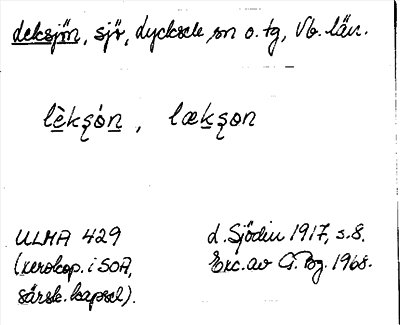 deksjön, sjö, dycksele sn o. tg, Vb. län.
lèkşón, lækşon
ULMA 429
(xerokop. i SOA,
särsk. kapsel).
d. Sjödin 1917, s.8.
Exc. av G. Pg. 1968.